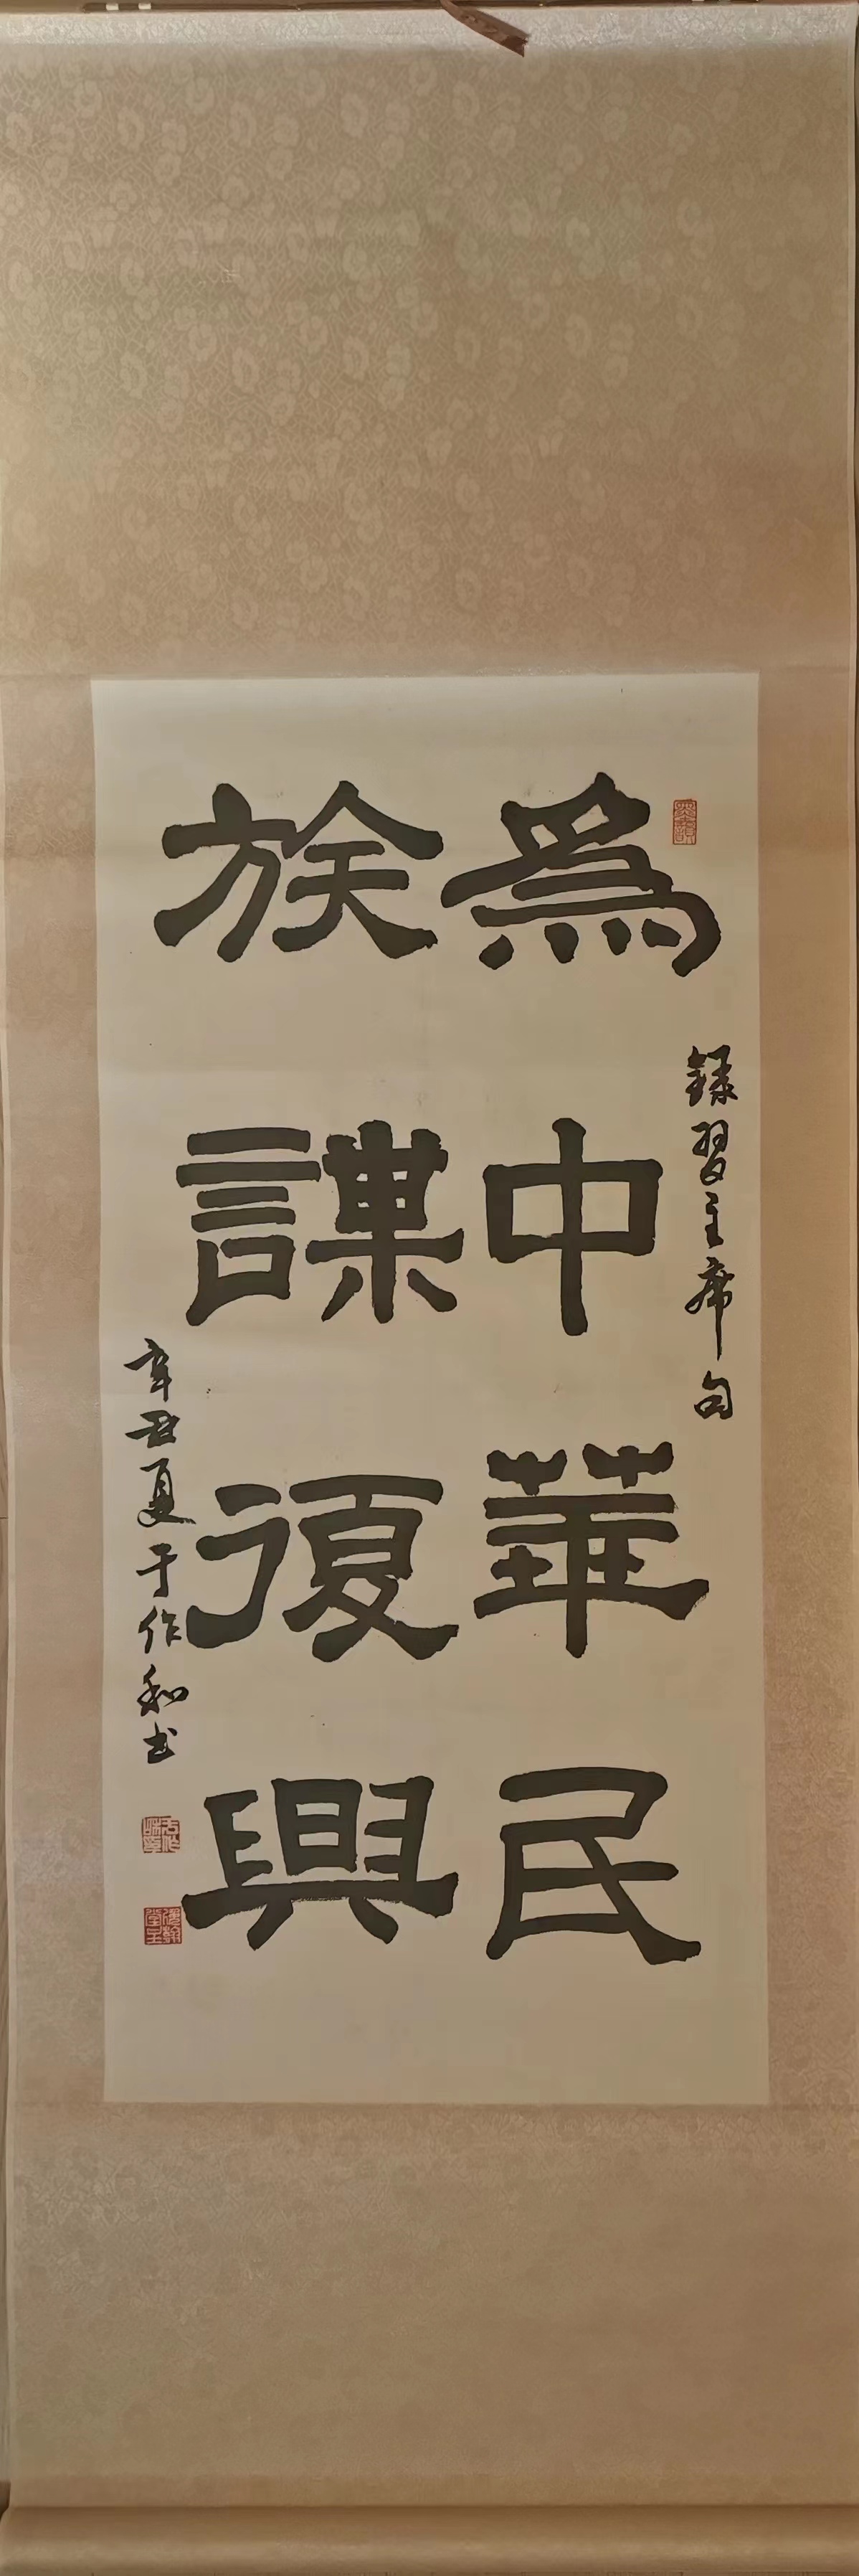 為中華民
族謀復興
錄習主席句
辛丑夏于作和书